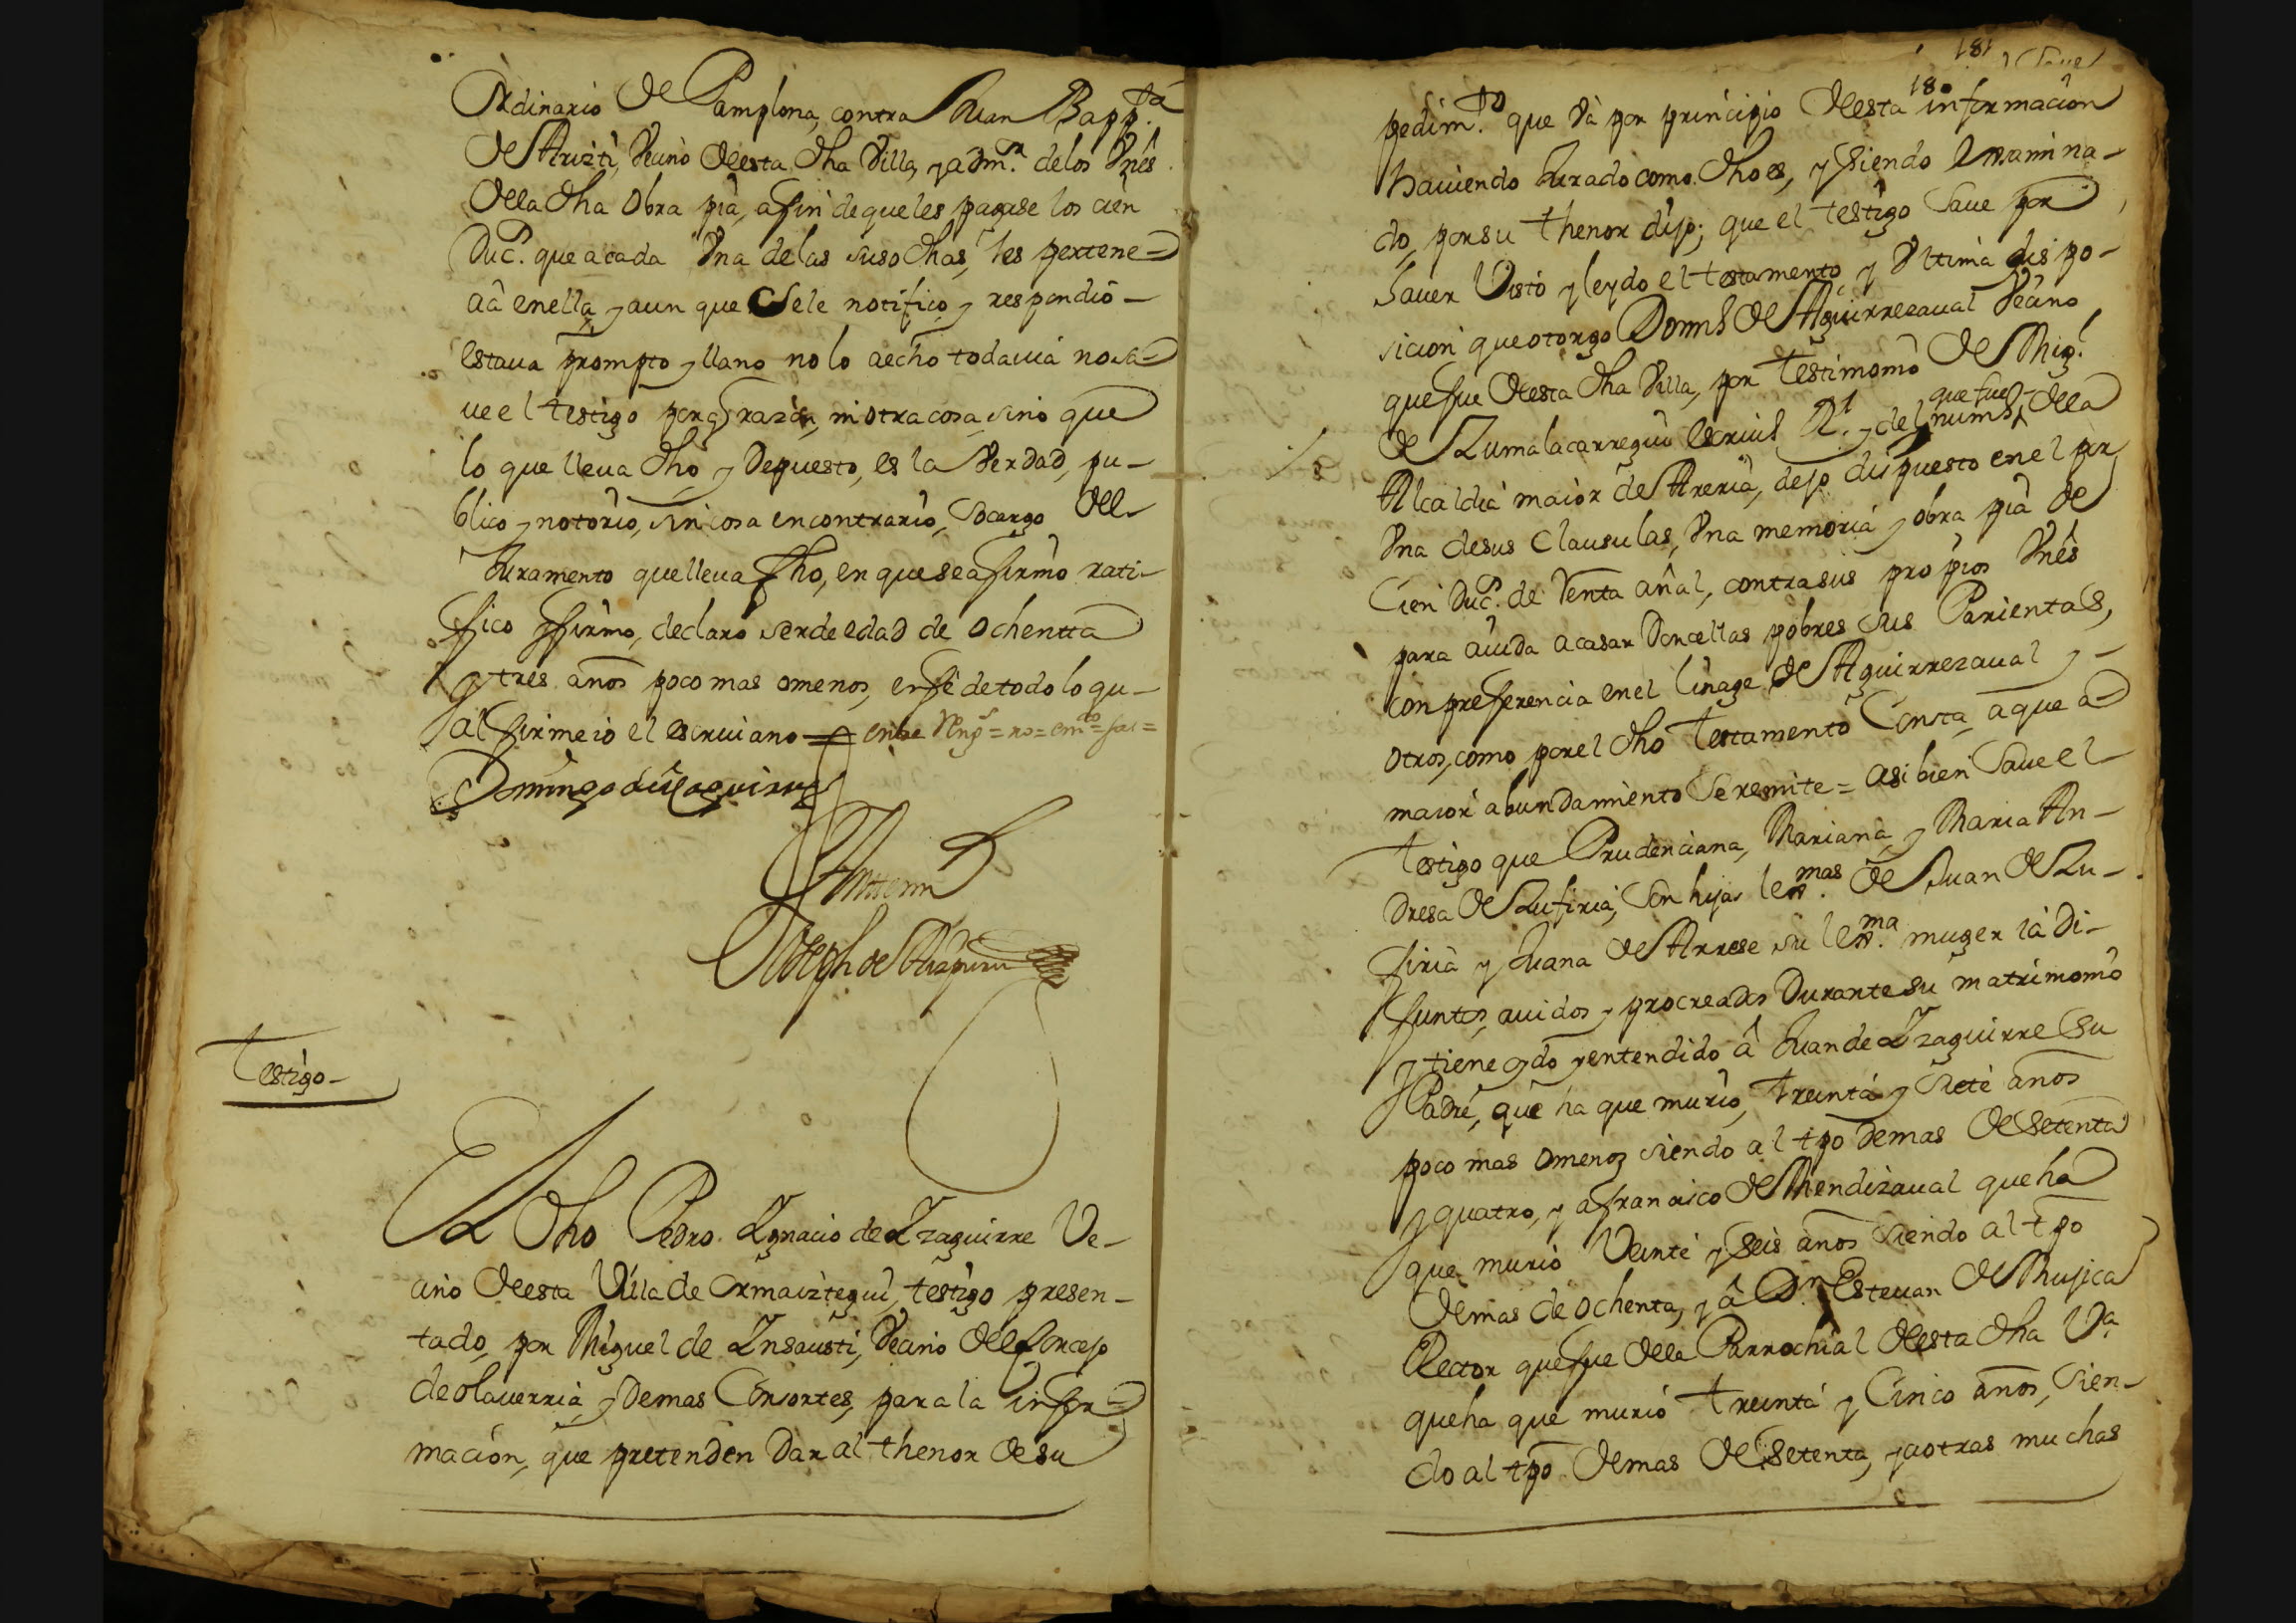 Ordinario de Pamplona, contra Juan Bapp.ta
de Arizti, vecino desta dha Villa, y adm.r delos vnes
della dha obra pia, afin deque les pagase los cien
Duc.s que a cada vna delas suso dhas, les pertene=
cia enella, y aun que se le notifico y respondio –
estaua prompto y llano no lo aecho todauia nosa=
ue el testigo por q razon, ni otra cosa sino que
lo que lleua dho y Depuesto, es la verdad, pu–
blico y notorio, sin cosa en contrario, so cargo del
Juramento que lleua fho, en que se afirmo rati–
fico y firmo, declaro ser de edad de ochentta
y tres años poco mas omenos, en fe de todo lo qu–
al firme io el escriuano
Domingo de Yzaguirre
Ante mi
Joseph de
Testigo –
El dho Pedro Ygnacio de Yzaguirre Ve–
cino desta Villa de Ormaiztegui, testigo presen–
tado, por Miguel de Ynsausti, vecino del Concejo
de olauerria, y Demas Consortes, para la infor=
macion, que pretenden Dar al thenor de su
181
180
pedim.to que va por principio desta informacion
hauiendo Jurado como dho es, y siendo examina–
do, por su thenor dijo; que el testigo saue por
hauer visto y leydo el testamento y vltima dispo–
sicion que otorgo Dom.s de Aguirrezaual vecino
que fue desta dha Villa, por testimonio de Mig.l
de Zumalacarregui escriu.o R.l y del num.o que fue della
Alcaldia maior de Areria, dejo dispuesto en el por
vna de sus clausulas, vna memoria y obra pia de
Cien Duc.s de Renta añal, contra sus propios vnes
para aiuda a casar Doncellas pobres sus Parientas,
con preferencia en el linage de Aguirrezaual y –
otros, como por el dho testamento Consta, a que a
maior abundamiento se remite = asi bien saue el
testigo que Prudenciana, Mariana, y Maria An–
dresa de Zufiria, son hijas lex.mas de Juan de Zu–
firia y Juana de Arrese su lex.ma muger ia di–
funtos, auidos y procreados Durante su matrimonio
y tiene oydo y entendido â Juan de Yzaguirre su
Padre, que ha que murio, treinta y siete años
poco mas omenos siendo al tpo demas de setenta
y quatro, y a francisco de Mendizaual que ha
que murio Veinte y seis años siendo al tpo
demas de ochenta, y â D.n Esteuan de Mujica
Rector que fue della Parrochial desta dha V.a
que ha que murio treinta y Cinco años, sien–
do al tpo demas de setenta, y a otras muchas